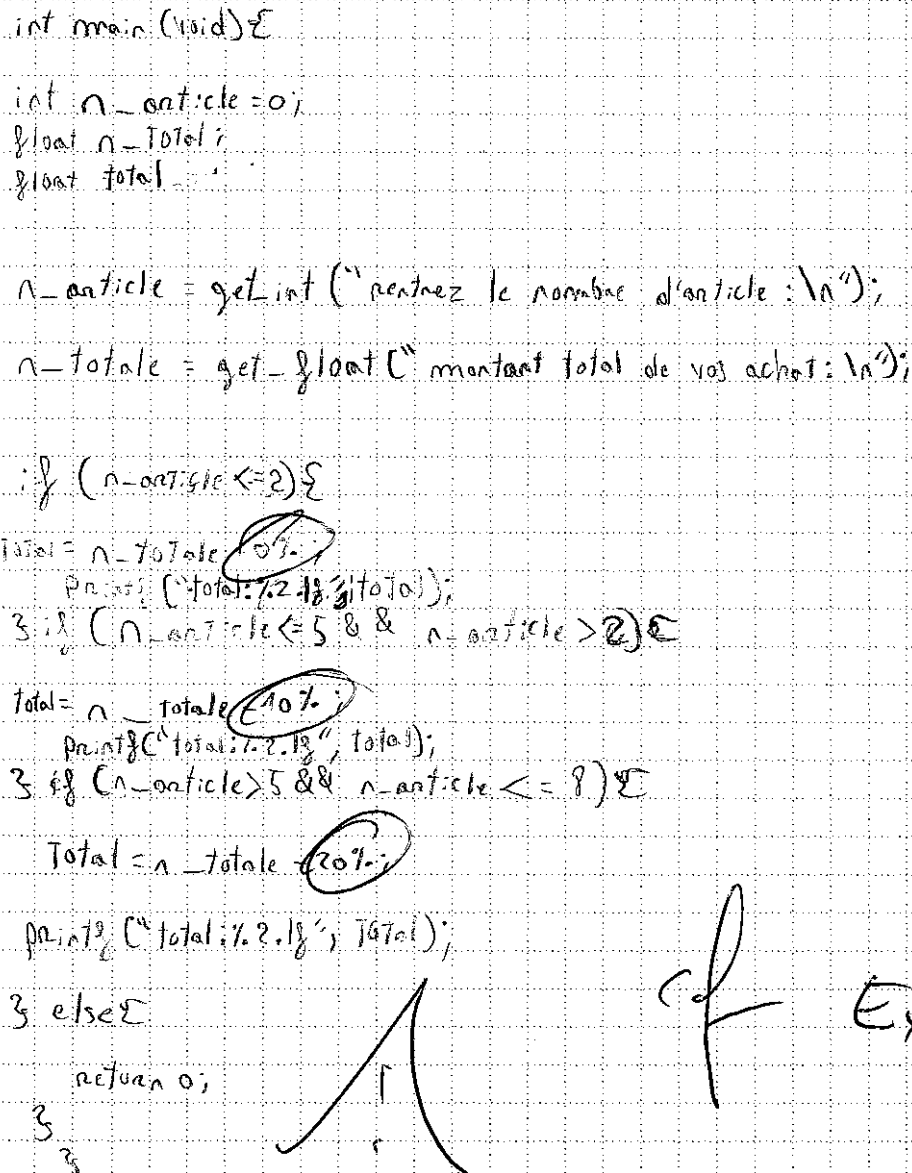 int main (void){
int n_article = 0;
float n_Total;
float total
n_article = get_int ("rentrez le nombre d'article : \n");
n_totale = get_float (" montant total de vos achat : \n");
if (n_article <=2){
Total = n_totale 0%;
printf ("total:%.2.lf", total);
} if (n_article <= 5 && n_article >2){
total = n_totale -10%;
printf("total:%.2.lf", total);
} if (n_article>5 && n_article <= 8){
Total = n_totale -20%;
printf ("total:%.2.lf", Total);
} else{
return 0;
}
}
cf Ex